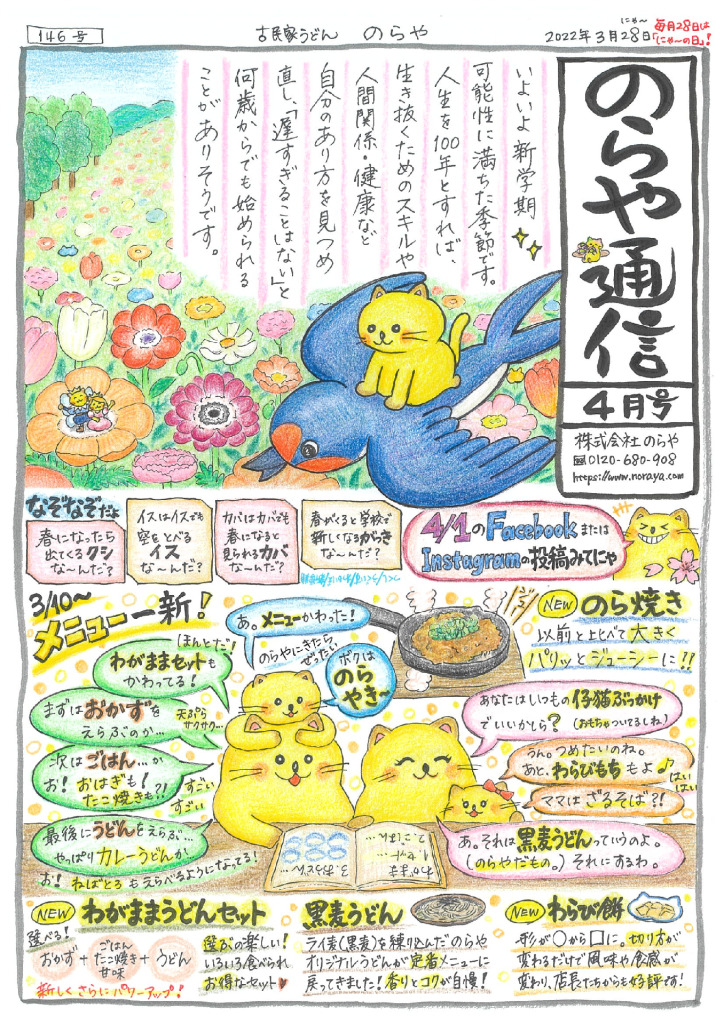 146号
古民家うどん のらや
2022年3月28日
にゃ〜
毎月28日は
「にゃ〜の日」!
のらや通信
4月号
株式会社のらや
0120-680-908
https://www.noraya.com
いよいよ新学期
可能性に満ちた季節です。
人生を100年とすれば、
生き抜くためのスキルや
人間関係・健康など
自分のあり方を見つめ
直し、「遅すぎることはない」と
何歳からでも始められる
ことがありそうです。
なぞなぞだよ
春になったら
出てくるクシ
な〜んだ?
イスはイスでも
空をとべる
イス
な〜んだ?
カバはカバでも
春になると
見られるカバ
な〜んだ?
春がくると学校で
新しくなるがっき
な〜んだ?
4/1のFacebookまたは
Instagramの投稿みてにゃ
3/10〜
メニュー一新!
あ。メニューかわった!
のらやにきたら
ぜったい
ボクは
のら
やき〜
NEW のら焼き
以前と比べて大きく
パリッとジューシーに!!
ほんとだ!
わがままセットも
かわってる!
まずはおかずを
えらぶのか…
天ぷら
サクサク…
次はごはん…か
お!おはぎも!
たこ焼きも!?
すごい
すごい
最後にうどんをえらぶ…
やっぱりカレーうどんか、
お!ねばとろもえらべるようになってる!
あなたはいつもの仔猫ぶっかけ
でいいかしら?(おもちゃついてるしね)
うん。つめたいのね。
あと、わらびもちもよ♪
はい
はい
ママはざるそば?!
あ。それは黒麦うどんっていうのよ。
(のらやだもの。)それにするわ。
わがまま
セット
1.
2.ごはん
3.おうどん
NEW わがままうどんセット
選べる!
おかず+ごはん たこ焼き 甘味+うどん
新しくさらにパワーアップ!
選ぶの楽しい!
いろいろ食べられ
お得なセット♥
黒麦うどん
ライ麦(黒麦)を練り込んだのらや
オリジナルうどんが定番メニューに
戻ってきました!香りとコクが自慢!
NEW わらび餅
形が○から□に。切り方が
変わるだけで風味や食感が
変わり、店長たちからも好評です!